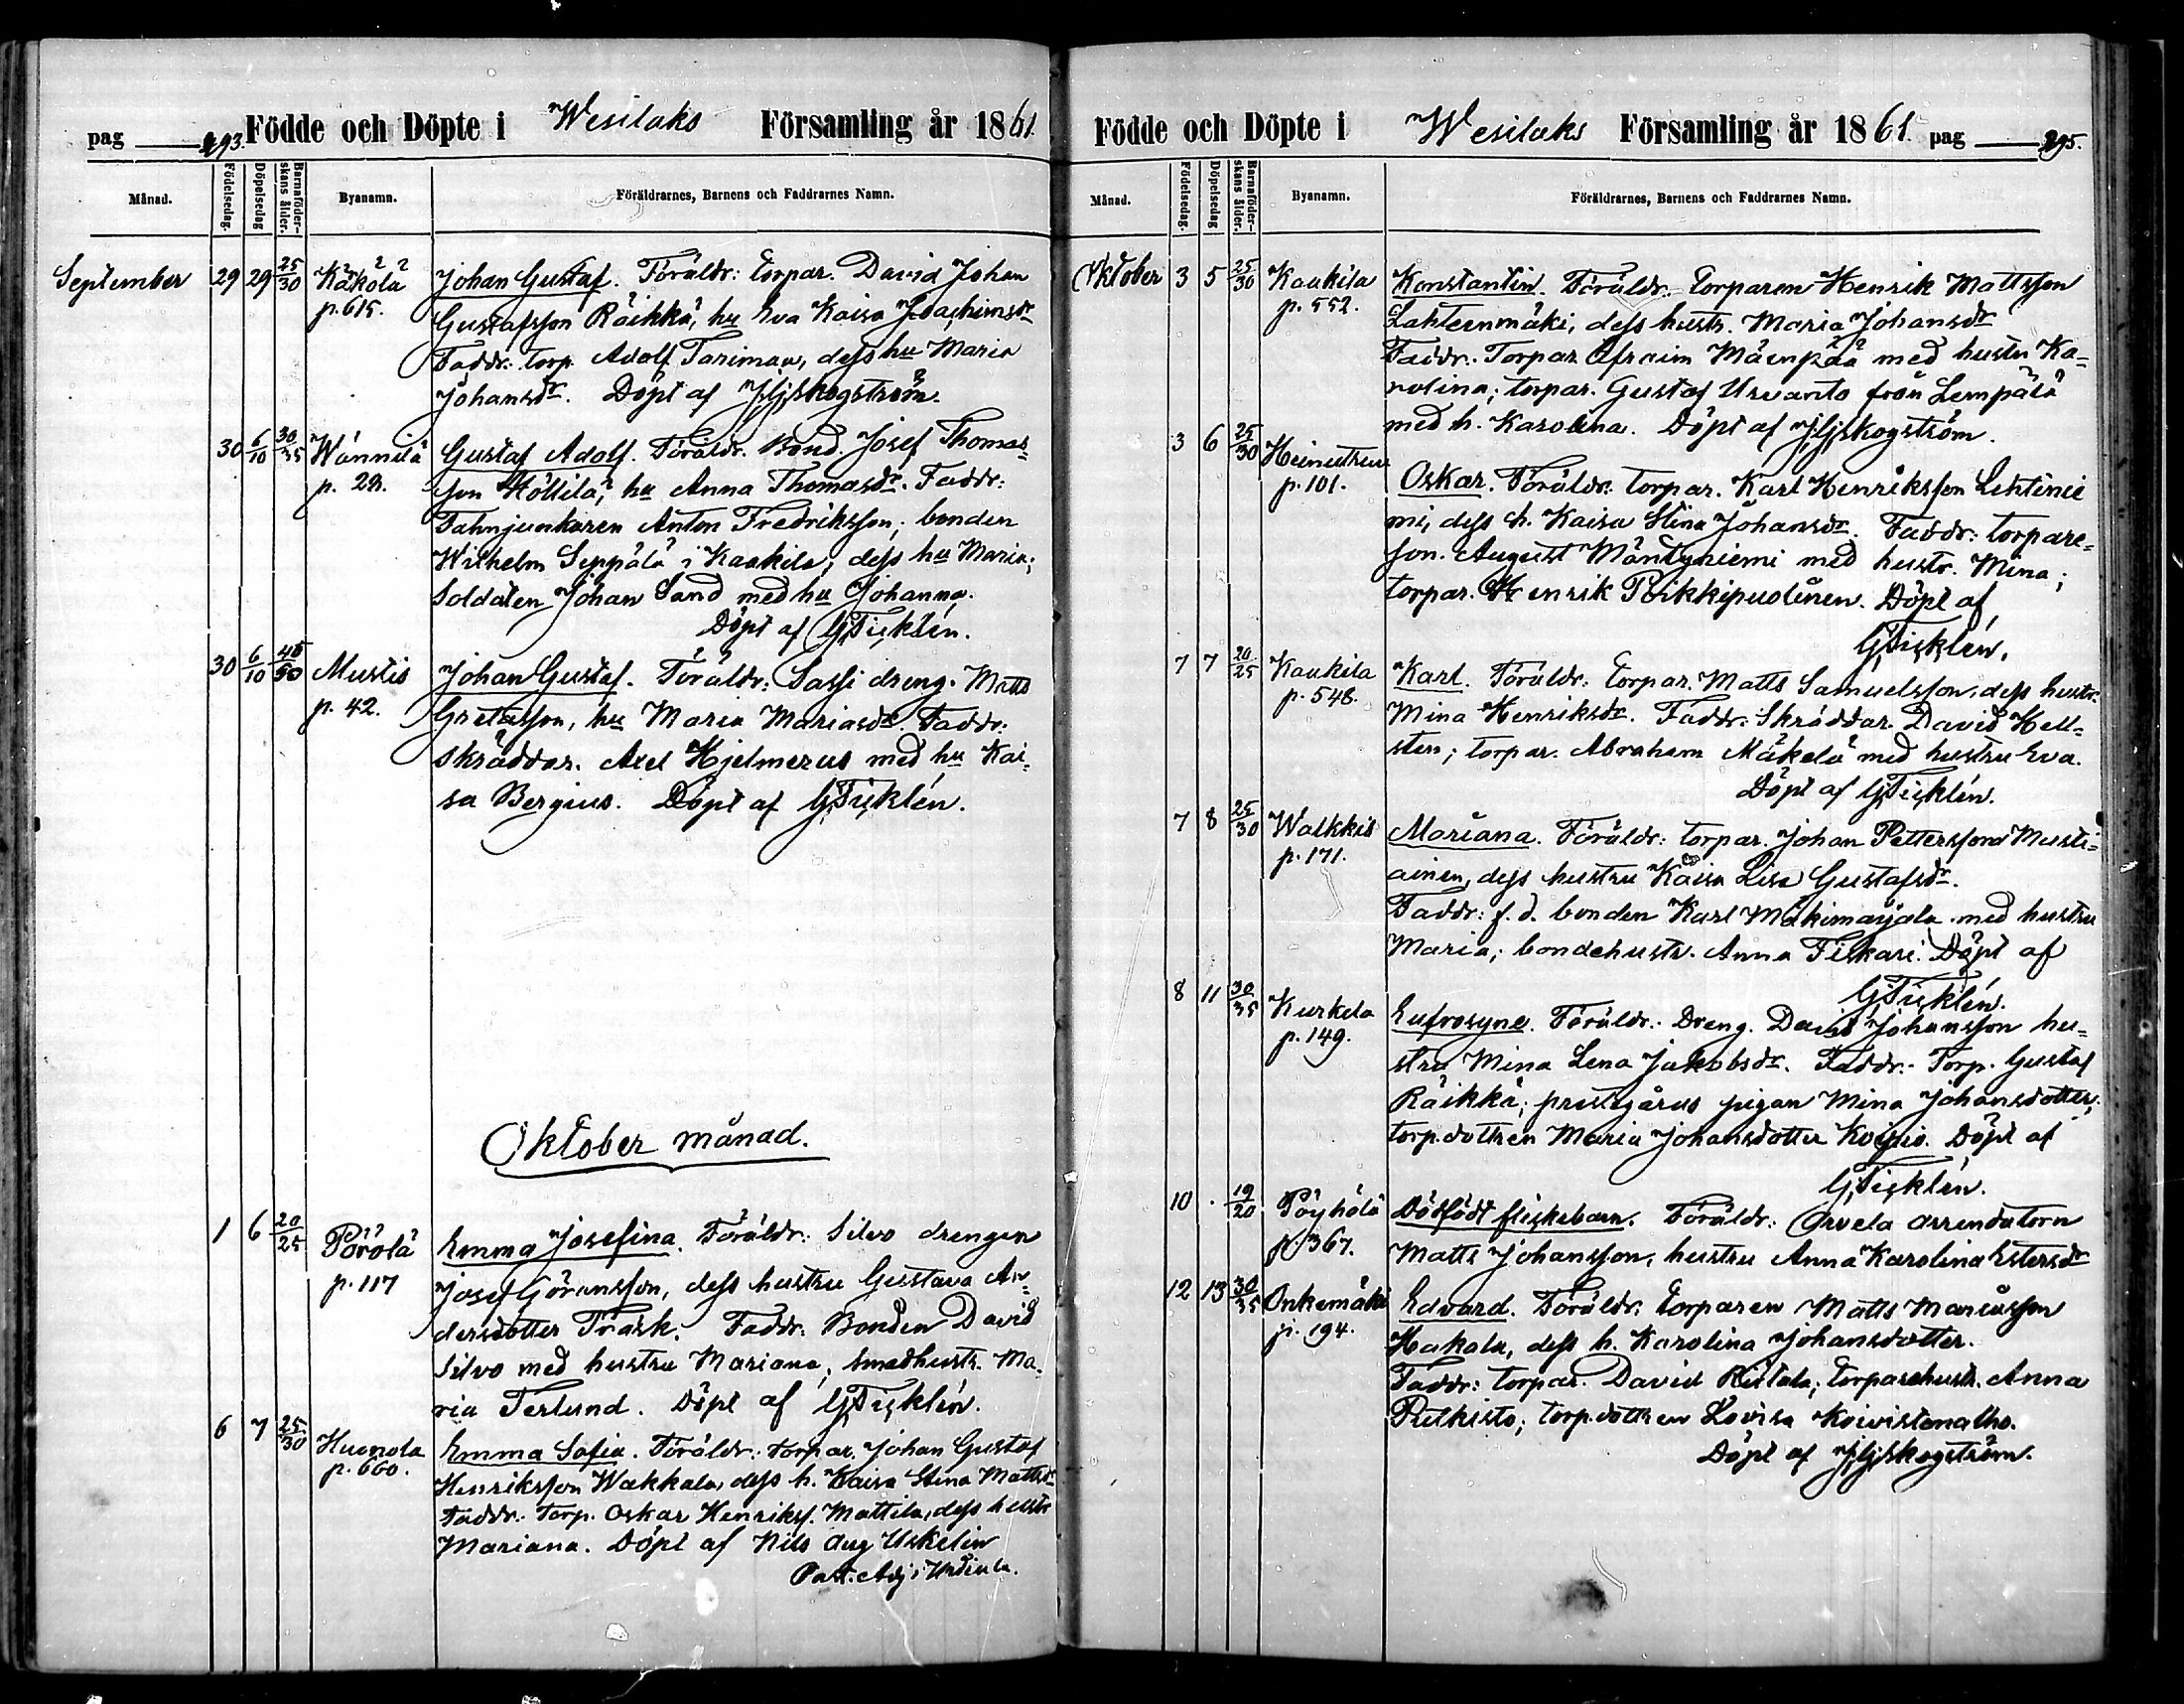 pag 293. Födde och Döpte i Wesilaks Församling år 1861.
Månad. Födelsedag. Döpelsedag Barnaföderskans ålder. Byanamn. Föräldrarnes, Barnens och Faddrarnes Namn.
September 29 29 25/30 Käkölä Johan Gustaf. Föräldr: torpar. David Johan
p. 615. Gustafsson Räikkä, hu Eva Kaisa Joachimsdr
Faddr: torp. Adolf Tanimaa, dess hu Maria
Johansdr. Döpt af JHjskogström.
30 6/10 30/35 Wännilä Gustaf Adolf. Föräldr. Bond. Josef Thomas-
p. 28. son Höllilä, hu Anna Thomasdr. Faddr:
Fahnjunkaren Anton Fredriksson; bonden
Wilhelm Seppälä i Kaakila, dess hu Maria;
Soldaten Johan Sand med hu Johanna.
Döpt af GFicklén.
30 6/10 45/50 Mustis Johan Gustaf. Föräldr: Sassi dreng. Matts
p. 42. Gretasson, hu Maria Mariasdr. Faddr:
skräddar. Axel Hjelmerus med hu Kai-
sa Bergius. Döpt af GFicklén.
Oktober månad.
1 6 20/25 Pörölä Emma Josefina. Föräldr: Silvo drengen
p. 117 Josef Göransson, dess hustru Gustava An-
dersdotter Träsk. Faddr: Bonden David
Silvo med hustru Mariana; smedhustr. Ma-
ria Terlund. Döpt af GFicklén.
6 7 25/30 Huonola Emma Sofia. Föräldr: torpar. Johan Gustaf
p. 660. Henriksson Wakkala, dess h. Kaisa Stina Mattsdr
Faddr: torp. Oskar Henrikss. Mattila, dess hustr
Mariana. Döpt af Nils Aug Uskelin
Past. Adj. i Urdiala.
Födde och Döpte i Wesilaks Församling år 1861. pag 295.
Månad. Födelsedag. Döpelsedag Barnaföderskans ålder. Byanamn. Föräldrarnes, Barnens och Faddrarnes Namn.
Oktober 3 5 25/30 Kaakila Konstantin. Föräldr: torparen Henrik Mattsson
p. 552. Lahteenmäki, dess hustr. Maria Johansdr
Faddr: Torpar Efraim Mäenpää med hustru Ka-
rolina; torpar. Gustaf Urvanto från Lempälä
med h. Karolina. Döpt af JHjskogström.
3 6 25/30 Heinistruu
p. 101. Oskar. Föräldr: torpar. Karl Henriksson Lehtinie
mi, dess h. Kaisa Stina Johansdr. Faddr: torpare-
son. August Mäntyniemi med hustr. Mina;
torpar. Henrik Poikkipuolinen. Döpt af
GFicklén.
7 7 20/25 Kaakila Karl. Föräldr: torpar. Matts Samuelsson, dess hustr.
p. 548. Mina Henriksdr. Faddr: Skräddar. David Hell-
sten; torpar. Abraham Mäkelä med hustru Eva.
Döpt af GFicklén.
7 8 25/30 Walkkis Mariana. Föräldr: torpar. Johan Pettersson Musti-
p. 171. ainen, dess hustru Kaisa Lisa Gustafsdr.
Faddr: f. d. bonden Karl Mäkimarjala med hustru
Maria; bondehustr. Anna Fiskari. Döpt af
GFicklén.
8 11 30/35 Kurkela Eufrosyne. Föräldr: Dreng. David Johansson hu-
p. 149. stru Mina Lena Jakobsdr. Faddr: Torp. Gustaf
Räikkä; prestgårds pigan Mina Johansdotter;
torp. dottren Maria Johansdotter Koyvio. Döpt af
GFicklén.
10 . 19/20 Pöyhölä Dödfödt flickebarn. Föräldr: Orvela arrendatorn
p. 367. Matts Johansson, hustru Anna Karolina Estersdr
12 13 30/35 Onkemäki Edvard. Föräldr: torparen Matts Mariasson
p. 194. Hakala, dess h. Karolina Johansdotter.
Faddr: torpar. David Riitala; torparehustr. Anna
Putkisto; torp. dottren Lovisa Koivistonalho.
Döpt af JHjskogström.